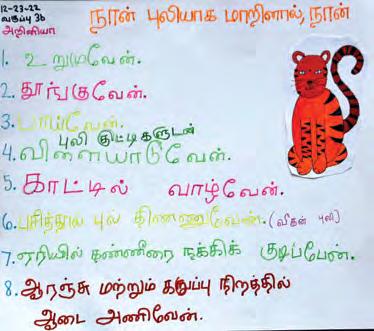 12-23-22
வகுப்பு 3b
அறினியா
நான் புலியாக மாறினால், நான்
1. உறுமுவேன்.
2. தூங்குவேன்.
3. பாய்வேன்.
புலி குட்டிகளுடன்
4. விளையாடுவேன்.
5. காட்டில் வாழ்வேன்.
6. பசித்தால் புல் தின்னுவேன். (வீகன் புலி)
7. ஏரியில் தண்ணீரை நக்கிக் குடிப்பேன்.
8. ஆரஞ்சு மற்றும் கருப்பு நிறத்தில்
ஆடை அணிவேன்.